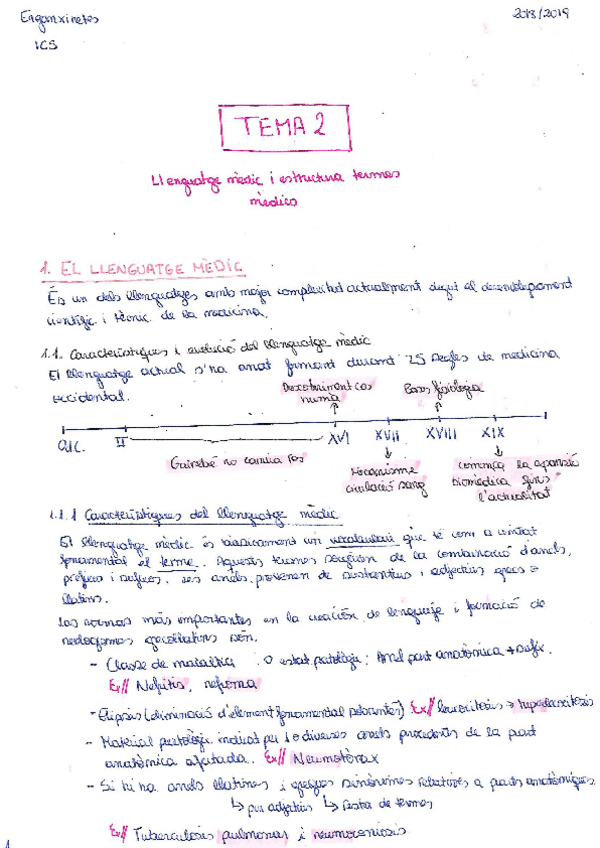 2018/2019
ICS
TEMA 2
Llenguatge mèdic i estructura termes
mèdics
1. EL LLENGUATGE MÈDIC
És un dels llenguatges amb major complexitat actualment degut al desenvolupament
científic i tècnic de la medicina.
1.1. Característiques i evolució del llenguatge mèdic
El llenguatge actual s'ha anat formant durant 25 segles de medicina
occidental.
Descobriment cos
humà
Bases fisiologia
a.C. II XVI XVII XVIII XIX
Gairebé no canvia res
Mecanisme
circulació sang
comença la
biomèdica fins
l'actualitat
1.1.1 Característiques del llenguatge mèdic
El llenguatge mèdic és bàsicament un vocabulari que té com a unitat
fonamental el terme. Aquests termes sorgeixen de la combinació d'arrels,
prefixos i sufixos. Les arrels provenen de substantius i adjectius grecs o
llatins.
Las normas más importantes en la creación de lenguaje i formació de
neologismes són.
- Classe de malaltia o estat patològic: Arrel part anatòmica + sufix.
Ex// Nefritis, nefroma
- Elipsis (eliminació d'element fonamental) Ex// leucocitosis →
- Material patològic indicat per 1 o diverses arrels precedents de la part
anatòmica afectada. Ex// Neumotórax
- Si hi ha arrels llatines i gregues sinònimes relatives a parts anatòmiques
↳ per adjectius ↳ resta de termes
Ex// Tuberculosis pulmonar i neumoconiosis
1